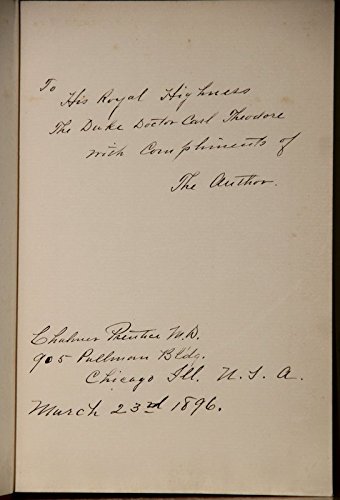 To
His Royal Highness
The Duke Doctor Carl Theodore
with Compliments of
The Author.
Chalmer Prentice M.D.
905 Pullman Bldg.
Chicago Ill. U.S.A.
March 23rd 1896.